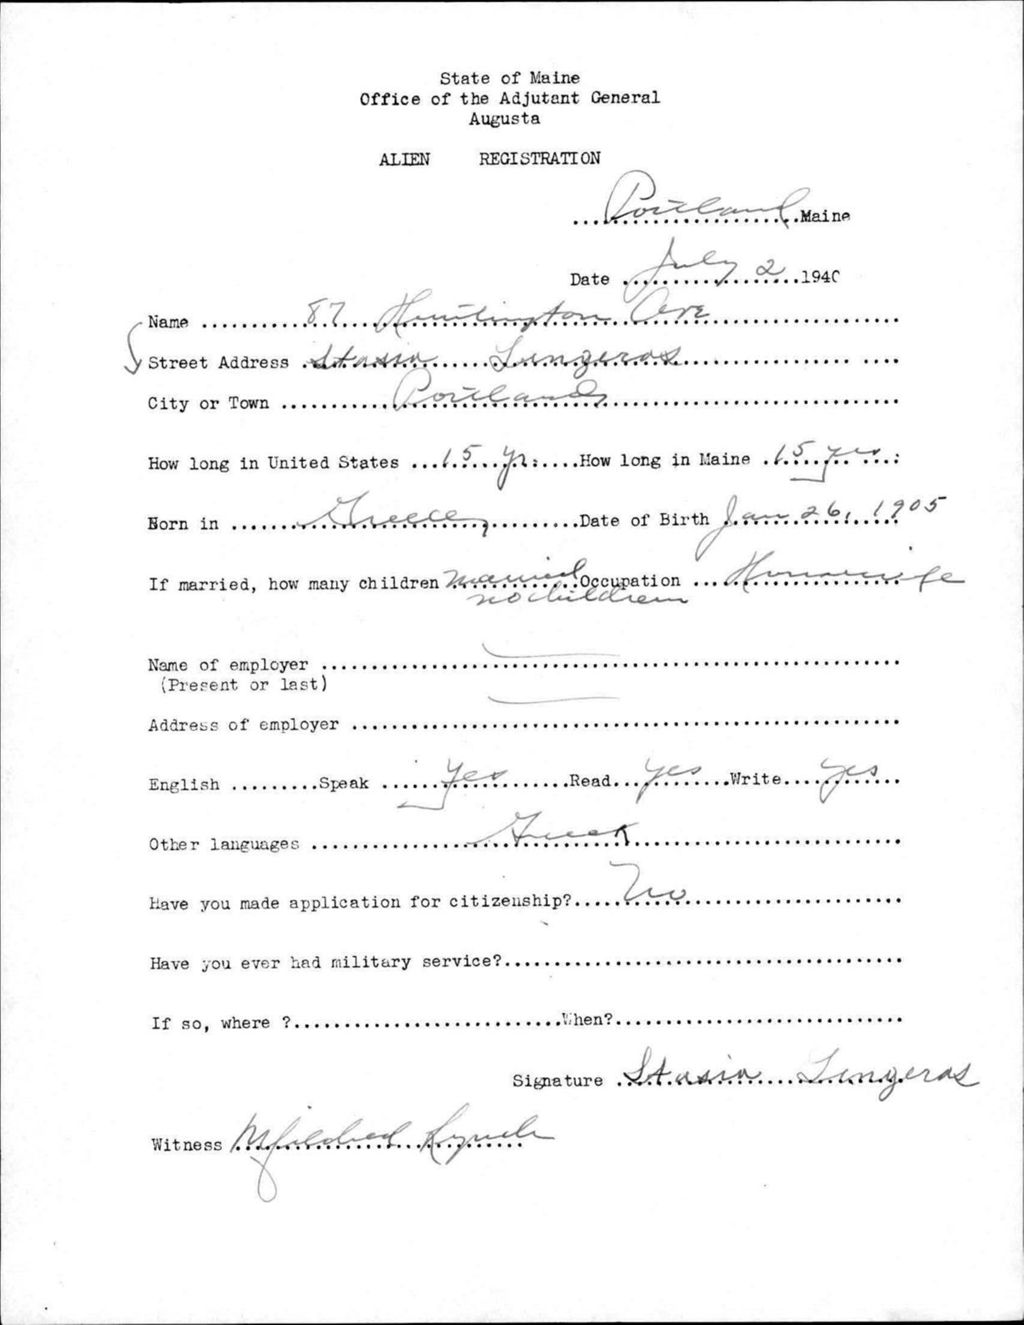 State of Maine
Office of the Adjutant General
Augusta
ALIEN REGISTRATION
Portland Maine
Date July 2 1940
Name 87 Huntington Ave
Street Address Stasia Lingeros
City or Town Portland
How long in United States 15 yr. How long in Maine 15 yrs
Born in Greece Date of Birth Jan 26, 1905
If married, how many children married Occupation Housewife
no children
Name of employer
(Present or last)
Address of employer
English Speak Yes Read yes Write yes
Other languages Greek
Have you made application for citizenship? No
Have you ever had military service?
If so, where ? When?
Signature Stasia Lingeros
Witness Mildred Lynch